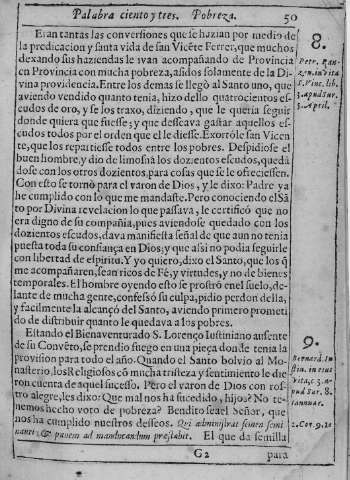 Palabra ciento y tres. Pobreza. 50
Eran tantas las conversiones que se hazian por medio de
la predicacion y santa vida de san Vicēte Ferrer, que muchos
dexando sus haziendas le ivan acompañando de Provincia
en Provincia con mucha pobreza, asidos solamente de la Di-
vina providencia. Entre los demas se llegò al Santo uno, que
aviendo vendido quanto tenia, hizo dello quatrocientos es-
cudos de oro, y se los traxo, diziendo, que le queria seguir
donde quiera que fuesse; y que desseava gastar aquellos es-
cudos todos por el orden que el le diesse. Exortòle san Vicen
te, que los repartiesse todos entre los pobres. Despidiose el
buen hombre, y dio de limosna los dozientos escudos, quedā
dose con los otros dozientos, para cosas que se le ofreciessen.
Con esto se tornò para el varon de Dios, y le dixo: Padre ya
he cumplido con lo que me mandaste. Pero conociendo el Sā
to por Divina revelacion lo que passava, le certificò que no
era digno de su compañia, pues aviendose quedado con los
dozientos escudos, dava manifiesta señal de que aun no tenia
puesta toda su confiança en Dios; y que assi no podia seguirle
con libertad de espiritu. Y yo quiero, dixo el Santo, que los q̄
me acompañaren, sean ricos de Fè, y virtudes, y no de bienes
temporales. El hombre oyendo esto se prostrò en el suelo, de-
lante de mucha gente, confessò su culpa, pidio perdon della,
y facilmente la alcançò del Santo, aviendo primero prometi
do de distribuir quanto le quedava a los pobres.
Estando el Bienaventurado S. Lorenço Iustiniano ausente
de su Convēto, se prendio fuego en una pieça donde tenia la
provision para todo el año. Quando el Santo bolvio al Mo-
nasterio, los Religiosos cō mucha tristeza y sentimiento le die
ron cuenta de aquel sucesso. Pero el varon de Dios con ros-
tro alegre, les dixo: Que mal nos ha sucedido, hijos? No te-
nemos hecho voto de pobreza? Bendito sea el Señor, que
nos ha cumplido nuestros desseos. Qui administrat semen semi
nanti; & panem ad manducandum præstabit. El que da semilla
G2 para
8.
Petr. Ran-
zan. in vita
S. Vinc. lib.
3. apud Sur.
5. April.
9.
Bernard. Iu
stin. in eius
vita, c. 3. a-
pud Sur. 8.
Ianuar.
2. Cor. 9. 10